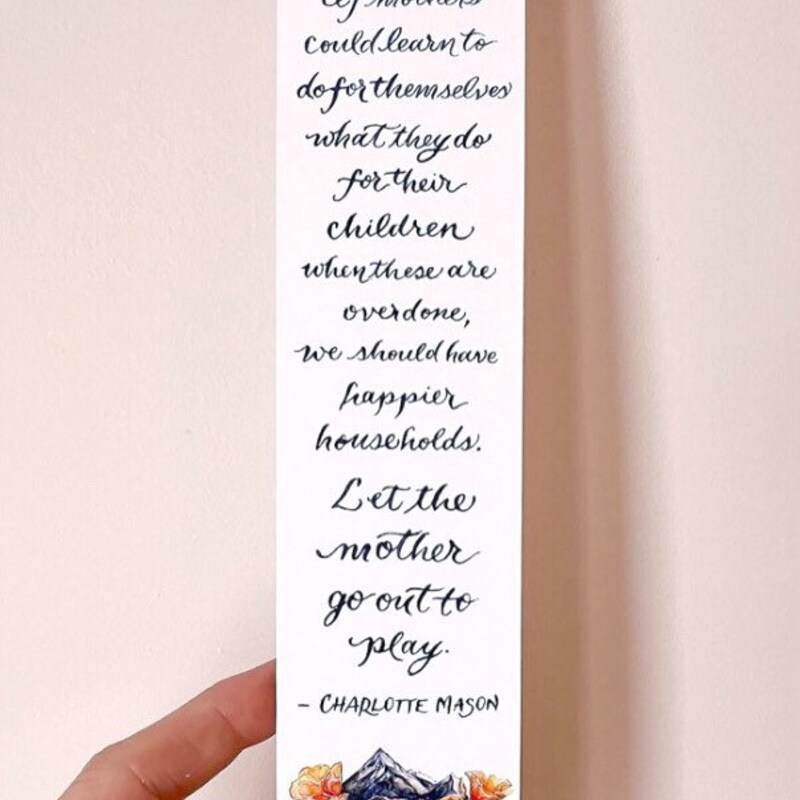 If mothers
could learn to
do for themselves
what they do
for their
children
when these are
overdone,
we should have
happier
households.
Let the
mother
go out to
play.
- CHARLOTTE MASON